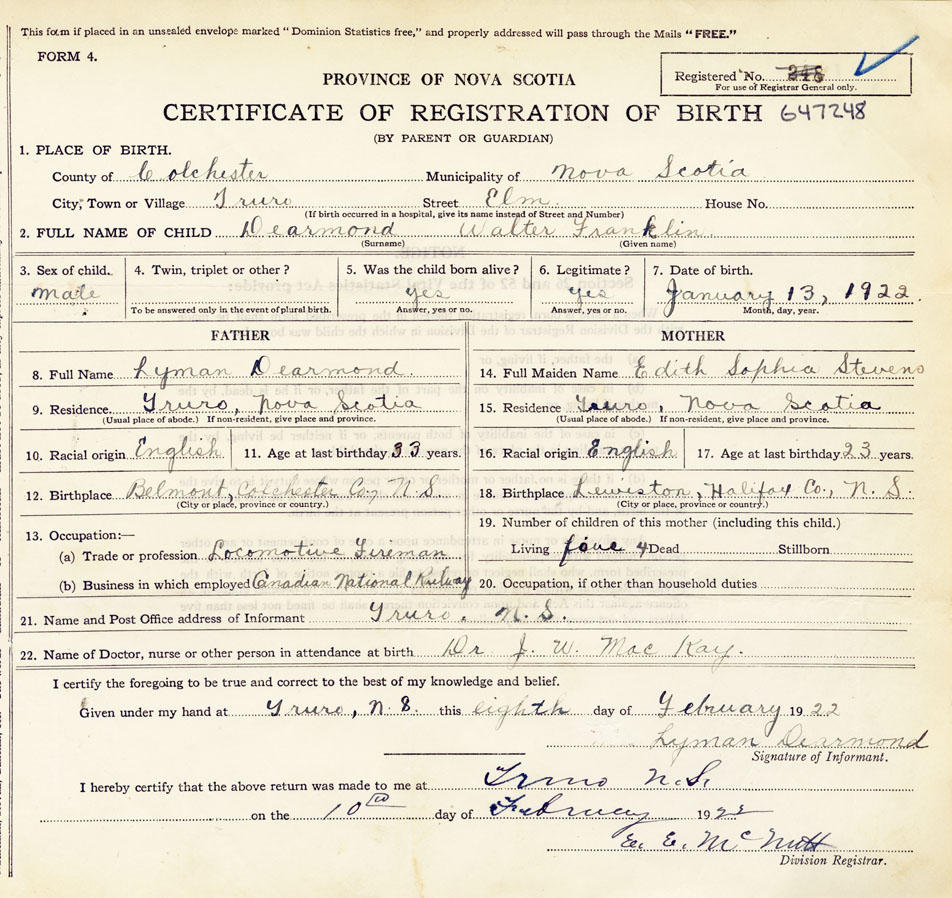 This form if placed in an unsealed envelope marked "Dominion Statistics free," and properly addressed will pass through the Mails "FREE."
FORM 4.
Registered No. 248
For use of Registrar General only.
PROVINCE OF NOVA SCOTIA
CERTIFICATE OF REGISTRATION OF BIRTH 647248
(BY PARENT OR GUARDIAN)
1. PLACE OF BIRTH.
County of Colchester Municipality of Nova Scotia
City, Town or Village Truro Street Elm. House No.
(If birth occurred in a hospital, give its name instead of Street and Number)
2. FULL NAME OF CHILD Dearmond Walter Franklin.
(Surname) (Given name)
3. Sex of child. 4. Twin, triplet or other? 5. Was the child born alive? 6. Legitimate? 7. Date of birth.
Male yes Yes January 13, 1922.
To be answered only in the event of plural birth. Answer, yes or no. Answer, yes or no. Month, day, year.
FATHER MOTHER
8. Full Name Lyman Dearmond. 14. Full Maiden Name Edith Sophia Stevens
9. Residence. Truro, Nova Scotia 15. Residence Truro, Nova Scotia
(Usual place of abode.) If non-resident, give place and province. (Usual place of abode.) If non-resident, give place and province.
10. Racial origin English 11. Age at last birthday 33 years. 16. Racial origin English 17. Age at last birthday 23 years.
12. Birthplace Belmont, Colchester Co., N.S. 18. Birthplace Lewiston, Halifax Co., N.S.
(City or place, province or country.) (City or place, province or country.)
19. Number of children of this mother (including this child.)
13. Occupation:—
Living four 4 Dead Stillborn
(a) Trade or profession Locomotive Fireman
(b) Business in which employed Canadian National Railway 20. Occupation, if other than household duties
21. Name and Post Office address of Informant Truro. N.S.
22. Name of Doctor, nurse or other person in attendance at birth Dr J. W. Mac Kay.
I certify the foregoing to be true and correct to the best of my knowledge and belief.
Given under my hand at Truro, N.S. this eighth day of February 1922
Lyman Dearmond
Signature of Informant.
I hereby certify that the above return was made to me at Truro N.S.
on the 10th day of February 1922
E. E. McNutt
Division Registrar.